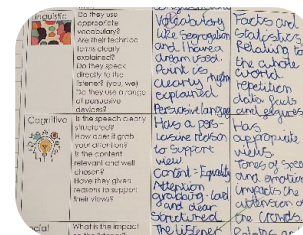 Linguistic
Do they use
appropriate
vocabulary?
Are their technical
terms clearly
explained?
Do they speak
directly to the
listener? (you, we)
Do they use a range
of persuasive
devices?
Vocabulary
Like Segregation
and I have a
dream used.
Point is
clearly
explained.
Persuasive language
Facts and
Statistics
Relating to
the whole
world
repetition
data facts
and
Cognitive
Is the speech clearly
structured?
How does it grab
your attention?
Is the content
relevant and well
chosen?
Have they given
reasons to support
their views?
Has a
reason
to support
view
Content - Equality
Attention
grabbing
and clear
Structured
Has
appropriate
views.
Tones of
and emotion
impacts the
attention of
the crowds
Social
What is the impact
The listener